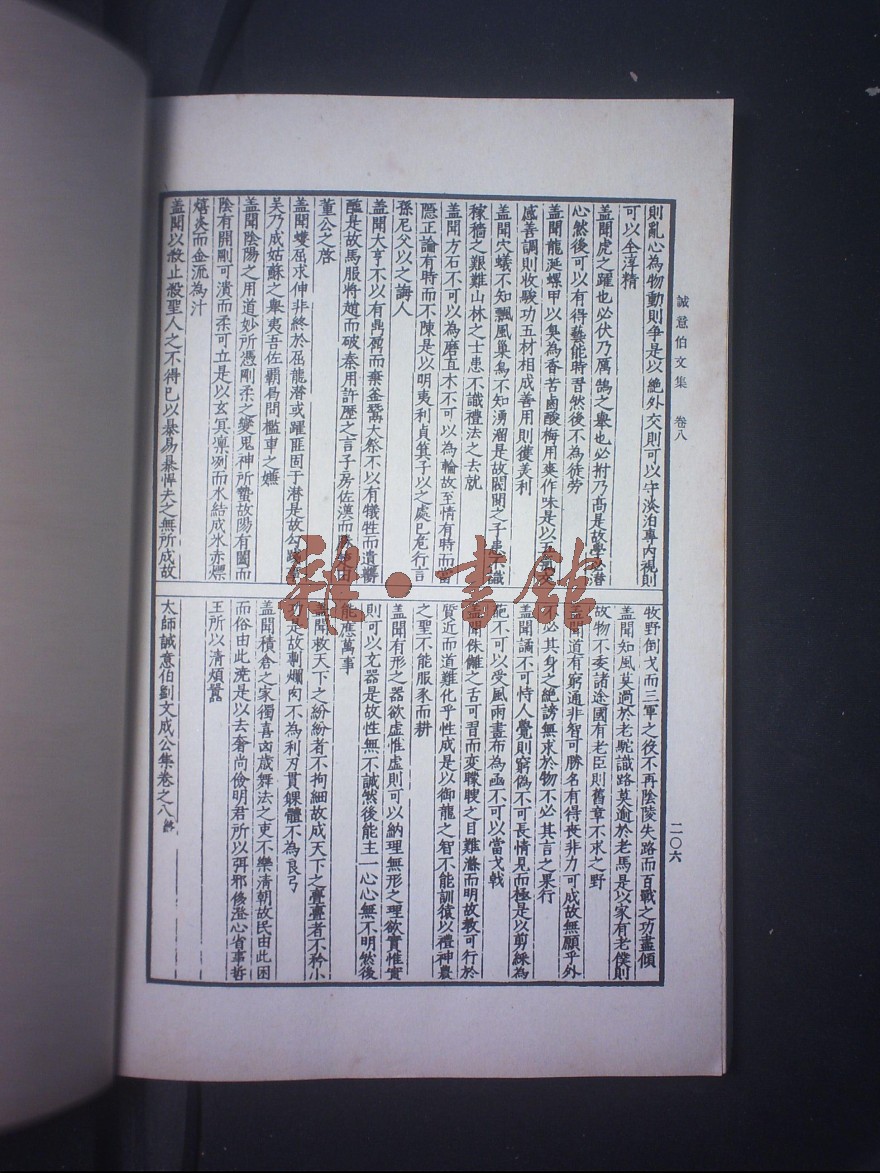 誠意伯文集 卷八
則亂心為物動則争是以絶外交則可以守淡泊専内視則
可以全淳精
盖聞虎之躍也必伏乃厲鵠之舉也必拊乃髙是故學必潜
心然後可以有得藝能時習然後不為徒勞
盖聞龍涎螺甲以臭為香苦鹵酸梅用爽作味是以五
感善調則收駿功五材相成善用則獲美利
盖聞穴蟻不知飄風巢鳥不知湧溜是故閥閲之子患不識
稼穡之艱難山林之士患不識禮法之去就
盖聞方石不可以為磨直木不可以為輪故至情有時而當
隠正論有時而不陳是以明夷利貞箕子以之處已危行言
孫尼父以之誨人
盖聞大亨不以有鼎鼐而棄釜鬵大祭不以有犧牲而遺
醢是故馬服將趙而破秦用許歷之言子房佐漢而
董公之啓
盖聞蠖屈求伸非終於屈龍潜或躍匪固于潜是故勾踐
吴乃成姑蘇之舉夷吾佐覇焉問檻車之
盖聞陰陽之用道妙所憑剛柔之變鬼神所蟄故陽有闔而
陰有開剛可潰而柔可立是以玄冥凛冽而水結成氷赤熛
熺炎而金流為汁
盖聞以殺止殺聖人之不得已以暴易暴悍夫之無所成故
牧野倒戈而三軍之役不再陰陵失路而百戰之功盡傾
盖聞知風莫過於老駝識路莫逾於老馬是以家有老僕則
故物不委諸途國有老臣則舊章不求之野
盖聞道有窮通非智可勝名有得丧非力可成故無願乎外
不必其身之絶謗無求於物不必其言之果行
盖聞譎不可恃人覺則窮偽不可長情見而極是以剪綵為
不可以受風雨畫布為凾不可以當戈戟
盖聞侏離之舌可習而変矇瞍之目難滌而明故教可行於
質近而道難化乎性成是以御龍之智不能訓猿以禮神農
之聖不能服豕而耕
盖聞有形之器欲虚惟虚則可以納理無形之理欲實惟實
則可以充器是故性無不誠然後能主一心心無不明然後
能應萬事
盖聞救天下之紛紛者不拘細故成天下之亹亹者不矜小
功是故剸爛肉不為利刃貫躶體不為良弓
盖聞積倉之家獨喜凶歳舞法之吏不樂清朝故民由此困
而俗由此澆是以去奢尚儉明君所以弭邪侈澄心省事哲
王所以清煩囂
太師誠意伯劉文成公集卷之八終
二〇六
雜·書館